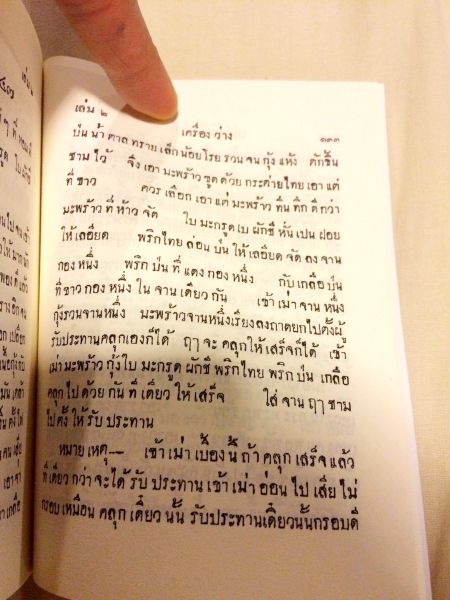 เล่น ๒ เครื่อง ว่าง ๑๓๓
ป่น น้ำ ตาล ทราย เล็ก น้อย โรย รวน จน กุ้ง แห้ง ตักขึ้น
ชาม ไว้ จึง เอา มะพร้าว ขูด ด้วย กระต่ายไทย เอา แต่
ที่ ขาว ควร เลือก เอา แต่ มะพร้าว ทึน ทึก ดี กว่า
มะพร้าว ที่ ห้าว จัด ใบ มะกรูด ใบ ผักชี หั่น เปน ฝอย
ให้ เลอียด พริกไทย ล่อน ป่น ให้ เลอียด จัด ลง จาน
กอง หนึ่ง พริก ป่น ที่ แดง กอง หนึ่ง กับ เกลือ ป่น
ที่ ขาว กอง หนึ่ง ใน จาน เดียว กัน เข้า เม่า จาน หนึ่ง
กุ้งรวนจานหนึ่ง มะพร้าวจานหนึ่งเรียงลงถาดยกไปตั้งผู้
รับประทานคลุกเองก็ได้ ฤๅ จะ คลุกให้ เสร็จก็ได้ เข้า
เม่า มะพร้าว กุ้ง ใบ มะกรูด ผักชี พริกไทย พริก ป่น เกลือ
คลุก ไป ด้วย กัน ที่ เดียว ให้ เสร็จ ใส่ จาน ฤๅ ชาม
ไป ตั้ง ให้ รับ ประทาน
หมาย เหตุ— เข้า เม่า เบื้อง นี้ ถ้า คลุก เสร็จ แล้ว
ที่เดียว กว่า จะ ได้ รับ ประทาน เข้า เม่า อ่อน ไป เสีย ไม่
กรอบ เหมือน คลุก เดี๋ยว นั้น รับประทานเดี๋ยวนั้นกรอบดี